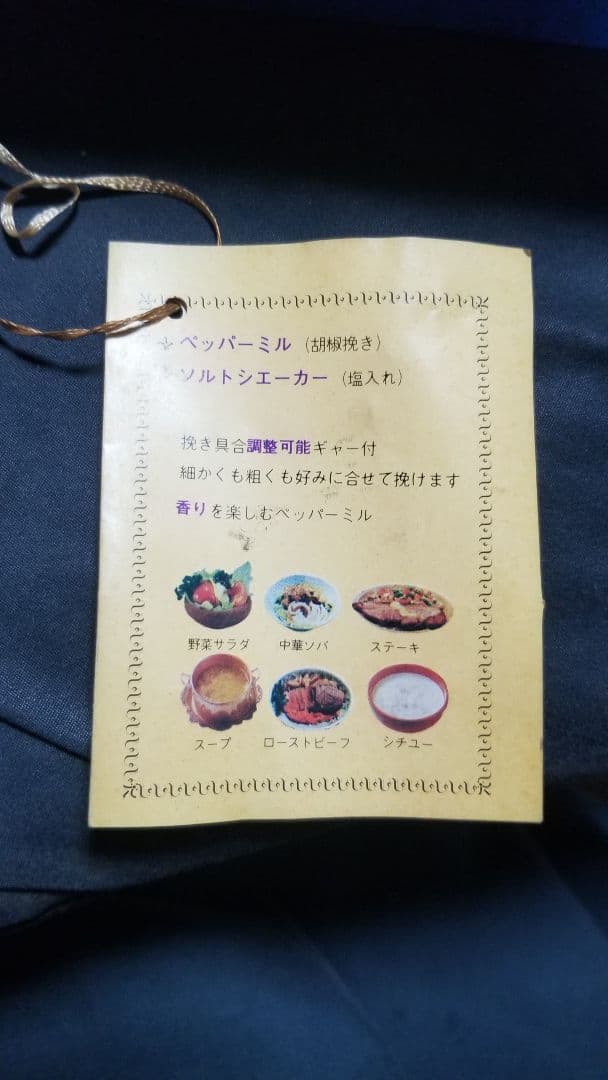 ペッパーミル（胡椒挽き）
ソルトシエーカー（塩入れ）
挽き具合調整可能ギャー付
細かくも粗くも好みに合せて挽けます
香りを楽しむペッパーミル
野菜サラダ 中華ソバ ステーキ
スープ ローストビーフ シチユー